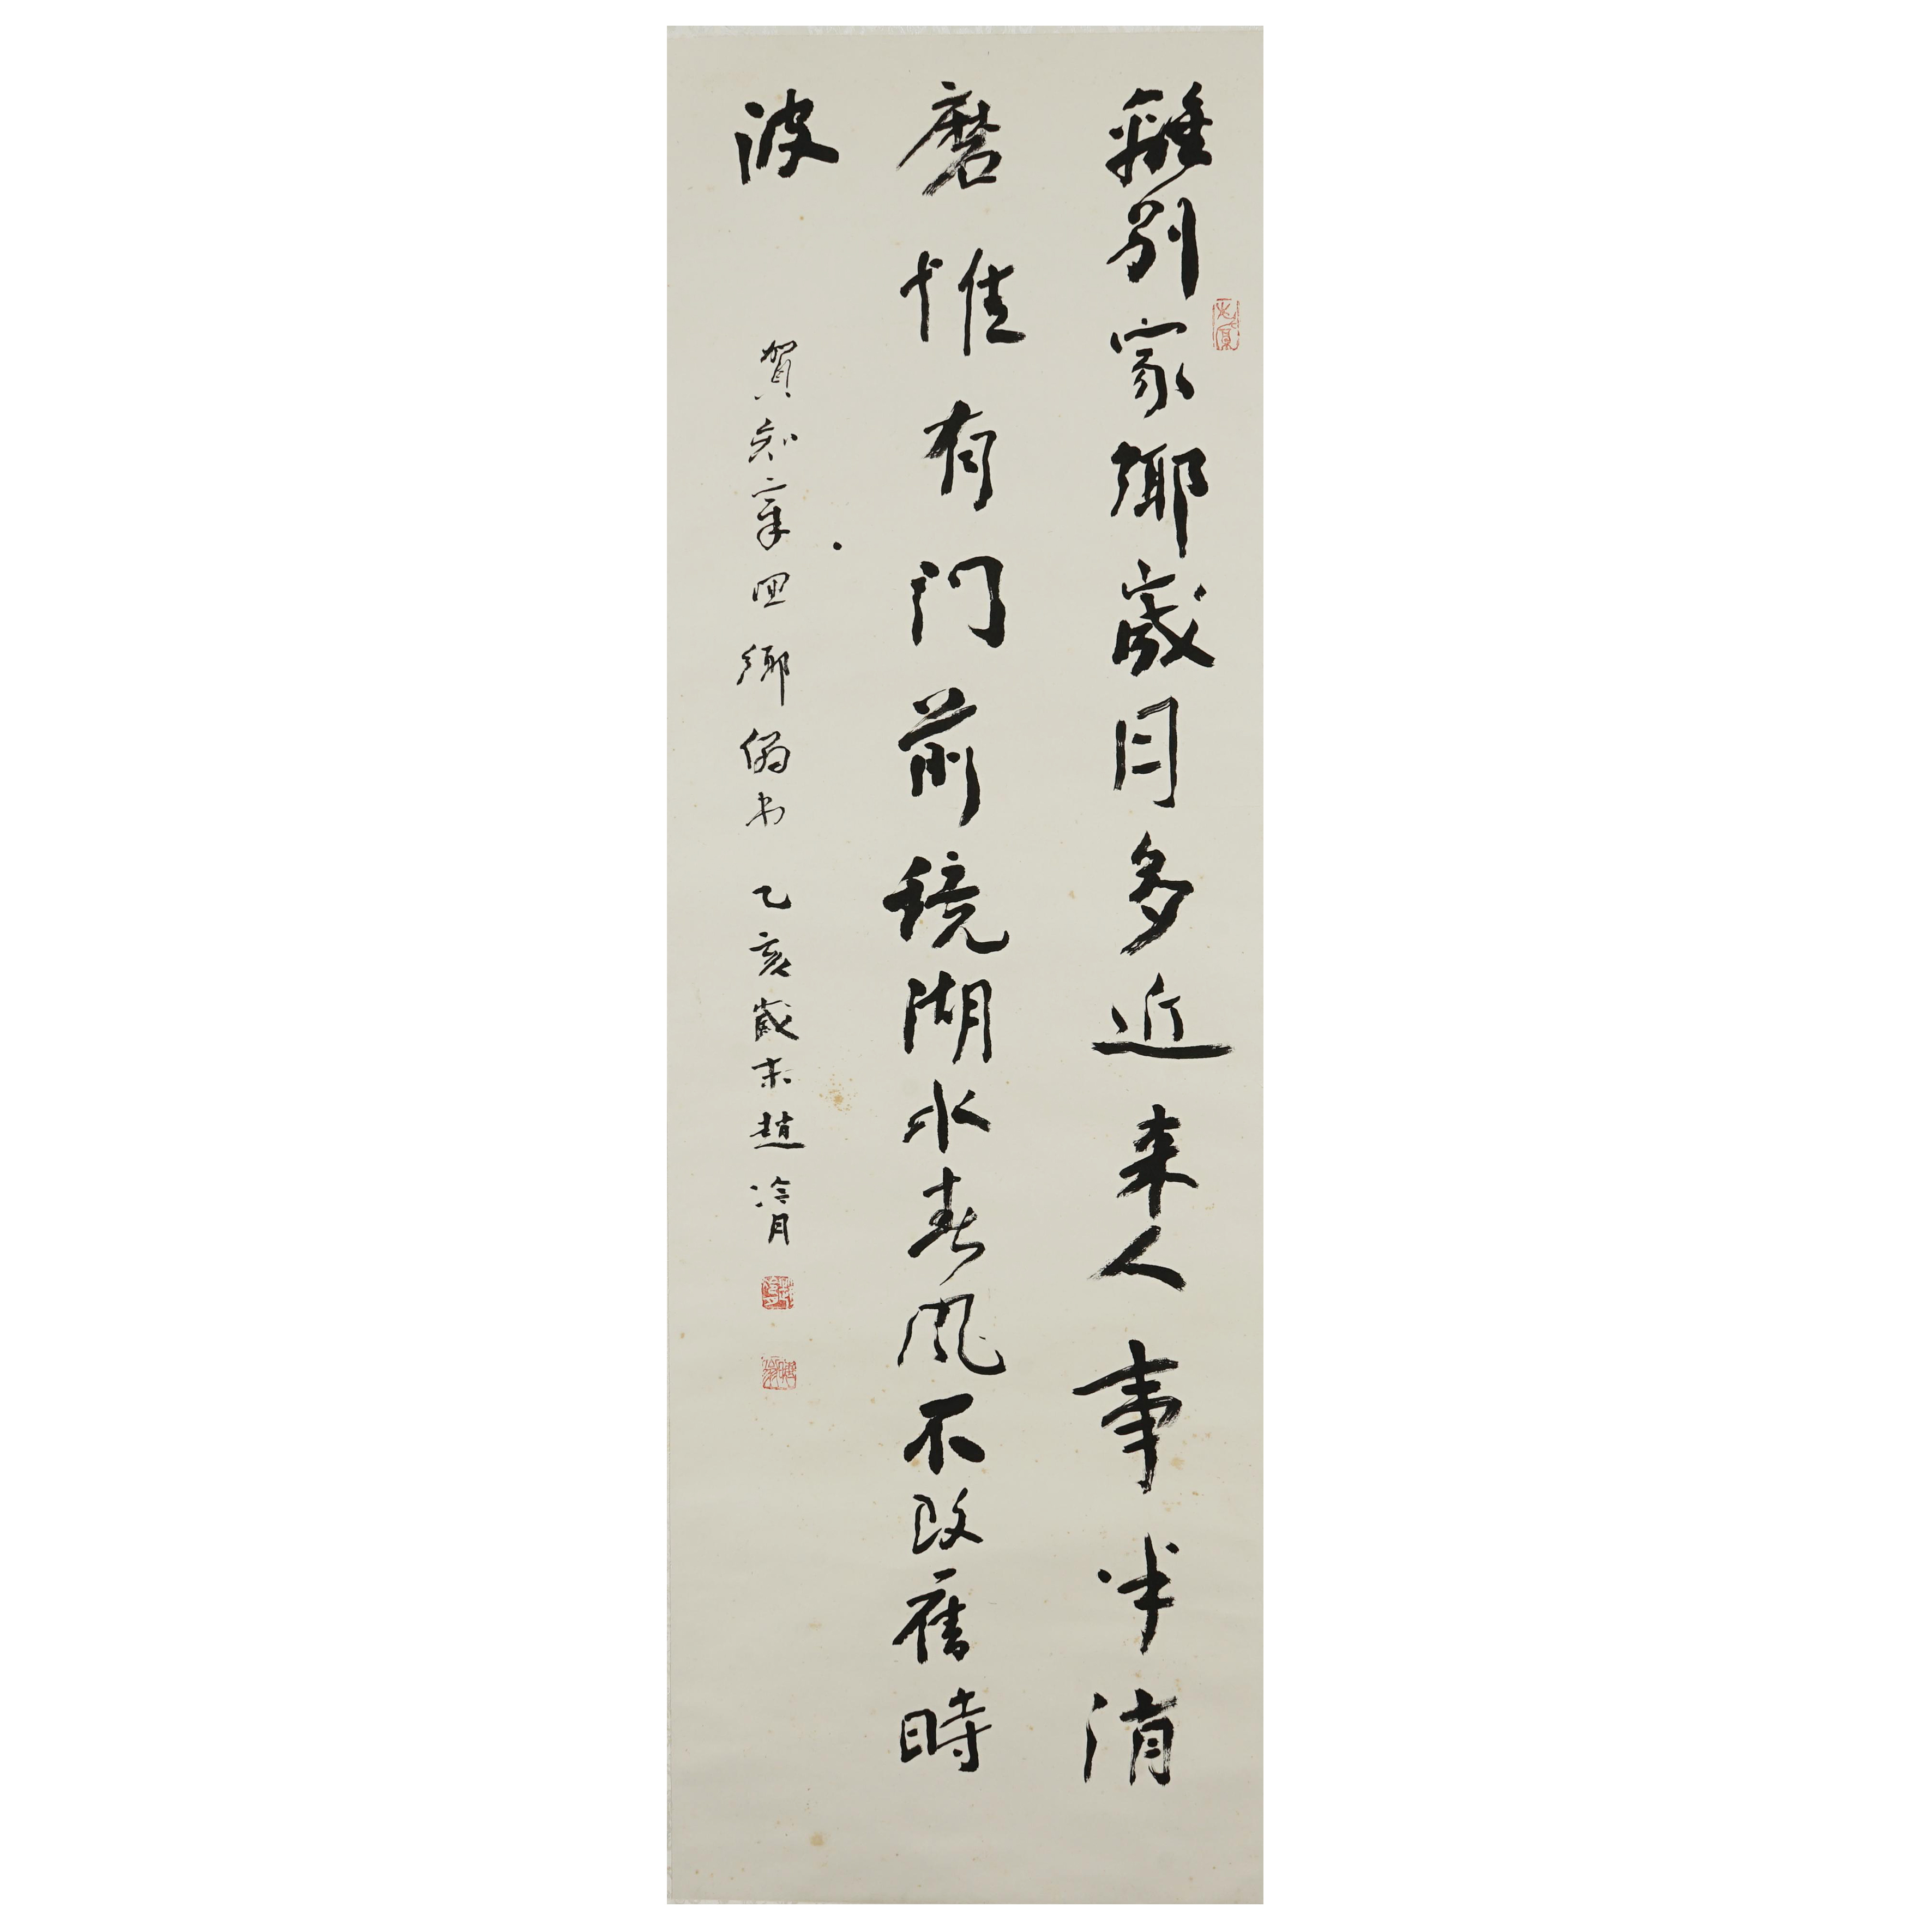 離別家鄉歲月多近来人事半消
磨惟有门前镜湖水春风不改舊時
波
賀知章回鄉偶书 乙亥歲末趙冷月